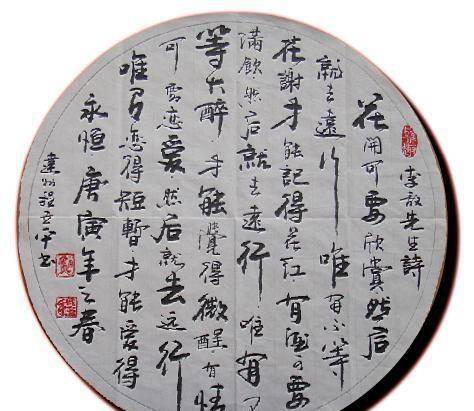 李敖先生詩
花開可要欣賞然后
就去遠行唯有不等
花謝才能記得花紅有酒可要
滿飲然后就去遠行唯有不
等大醉才能覺得微醒有情
可要恋愛然后就去远行
唯有恋得短暫才能愛得
永恒庚寅年之春
程書